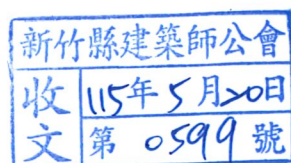 新竹縣建築師公會
收文
115年5月20日
第0599號